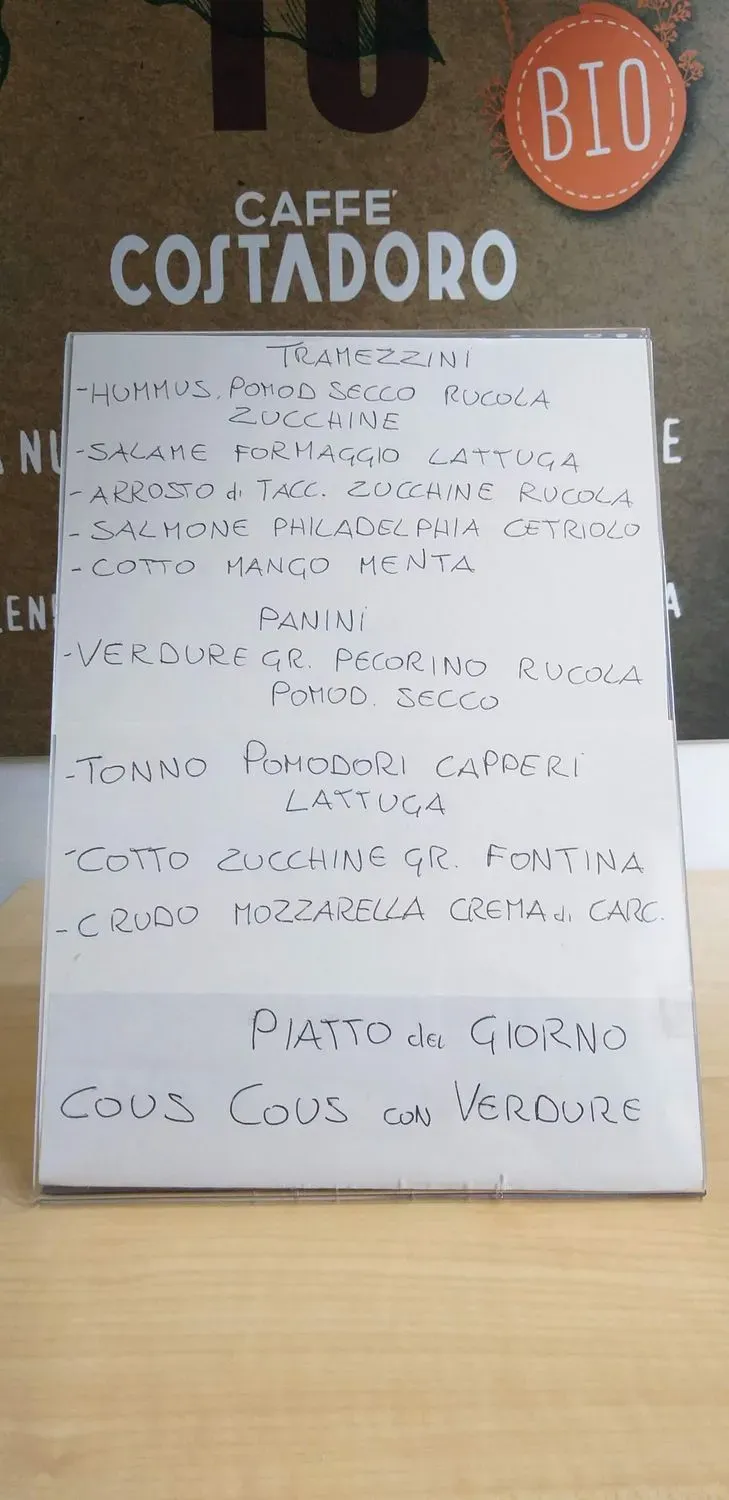 10
BIO
CAFFÈ
COSTADORO
TRAMEZZINI
-HUMMUS. POMOD SECCO RUCOLA
ZUCCHINE
-SALAME FORMAGGIO LATTUGA
-ARROSTO di TACC. ZUCCHINE RUCOLA
-SALMONE PHILADELPHIA CETRIOLO
-COTTO MANGO MENTA
PANINI
-VERDURE GR. PECORINO RUCOLA
POMOD. SECCO
-TONNO POMODORI CAPPERI
LATTUGA
-COTTO ZUCCHINE GR. FONTINA
-CRUDO MOZZARELLA CREMA di CARC.
PIATTO del GIORNO
COUS COUS CON VERDURE